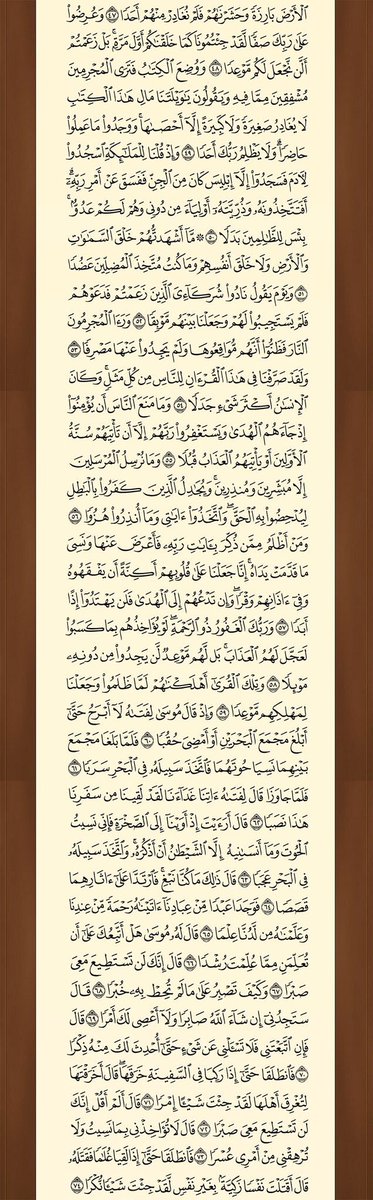 ٱلْأَرْضَ بَارِزَةً وَحَشَرْنَٰهُمْ فَلَمْ نُغَادِرْ مِنْهُمْ أَحَدًا ٤٧ وَعُرِضُوا۟
عَلَىٰ رَبِّكَ صَفًّا لَّقَدْ جِئْتُمُونَا كَمَا خَلَقْنَٰكُمْ أَوَّلَ مَرَّةٍۭ ۚ بَلْ زَعَمْتُمْ
أَلَّن نَّجْعَلَ لَكُم مَّوْعِدًا ٤٨ وَوُضِعَ ٱلْكِتَٰبُ فَتَرَى ٱلْمُجْرِمِينَ
مُشْفِقِينَ مِمَّا فِيهِ وَيَقُولُونَ يَٰوَيْلَتَنَا مَالِ هَٰذَا ٱلْكِتَٰبِ
لَا يُغَادِرُ صَغِيرَةً وَلَا كَبِيرَةً إِلَّآ أَحْصَىٰهَا ۚ وَوَجَدُوا۟ مَا عَمِلُوا۟
حَاضِرًا ۗ وَلَا يَظْلِمُ رَبُّكَ أَحَدًا ٤٩ وَإِذْ قُلْنَا لِلْمَلَٰٓئِكَةِ ٱسْجُدُوا۟
لِءَادَمَ فَسَجَدُوٓا۟ إِلَّآ إِبْلِيسَ كَانَ مِنَ ٱلْجِنِّ فَفَسَقَ عَنْ أَمْرِ رَبِّهِۦٓ ۗ
أَفَتَتَّخِذُونَهُۥ وَذُرِّيَّتَهُۥٓ أَوْلِيَآءَ مِن دُونِى وَهُمْ لَكُمْ عَدُوٌّۢ ۚ
بِئْسَ لِلظَّٰلِمِينَ بَدَلًا ٥٠ ۞ مَّآ أَشْهَدتُّهُمْ خَلْقَ ٱلسَّمَٰوَٰتِ
وَٱلْأَرْضِ وَلَا خَلْقَ أَنفُسِهِمْ وَمَا كُنتُ مُتَّخِذَ ٱلْمُضِلِّينَ عَضُدًا
٥١ وَيَوْمَ يَقُولُ نَادُوا۟ شُرَكَآءِىَ ٱلَّذِينَ زَعَمْتُمْ فَدَعَوْهُمْ
فَلَمْ يَسْتَجِيبُوا۟ لَهُمْ وَجَعَلْنَا بَيْنَهُم مَّوْبِقًا ٥٢ وَرَءَا ٱلْمُجْرِمُونَ
ٱلنَّارَ فَظَنُّوٓا۟ أَنَّهُم مُّوَاقِعُوهَا وَلَمْ يَجِدُوا۟ عَنْهَا مَصْرِفًا ٥٣
وَلَقَدْ صَرَّفْنَا فِى هَٰذَا ٱلْقُرْءَانِ لِلنَّاسِ مِن كُلِّ مَثَلٍ ۚ وَكَانَ
ٱلْإِنسَٰنُ أَكْثَرَ شَىْءٍ جَدَلًا ٥٤ وَمَا مَنَعَ ٱلنَّاسَ أَن يُؤْمِنُوٓا۟
إِذْ جَآءَهُمُ ٱلْهُدَىٰ وَيَسْتَغْفِرُوا۟ رَبَّهُمْ إِلَّآ أَن تَأْتِيَهُمْ سُنَّةُ
ٱلْأَوَّلِينَ أَوْ يَأْتِيَهُمُ ٱلْعَذَابُ قُبُلًا ٥٥ وَمَا نُرْسِلُ ٱلْمُرْسَلِينَ
إِلَّا مُبَشِّرِينَ وَمُنذِرِينَ ۚ وَيُجَٰدِلُ ٱلَّذِينَ كَفَرُوا۟ بِٱلْبَٰطِلِ
لِيُدْحِضُوا۟ بِهِ ٱلْحَقَّ ۖ وَٱتَّخَذُوٓا۟ ءَايَٰتِى وَمَآ أُنذِرُوا۟ هُزُوًا ٥٦
وَمَنْ أَظْلَمُ مِمَّن ذُكِّرَ بِـَٔايَٰتِ رَبِّهِۦ فَأَعْرَضَ عَنْهَا وَنَسِىَ
مَا قَدَّمَتْ يَدَاهُ ۚ إِنَّا جَعَلْنَا عَلَىٰ قُلُوبِهِمْ أَكِنَّةً أَن يَفْقَهُوهُ
وَفِىٓ ءَاذَانِهِمْ وَقْرًا ۖ وَإِن تَدْعُهُمْ إِلَى ٱلْهُدَىٰ فَلَن يَهْتَدُوٓا۟ إِذًا
أَبَدًا ٥٧ وَرَبُّكَ ٱلْغَفُورُ ذُو ٱلرَّحْمَةِ ۖ لَوْ يُؤَاخِذُهُم بِمَا كَسَبُوا۟
لَعَجَّلَ لَهُمُ ٱلْعَذَابَ ۚ بَل لَّهُم مَّوْعِدٌ لَّن يَجِدُوا۟ مِن دُونِهِۦ
مَوْئِلًا ٥٨ وَتِلْكَ ٱلْقُرَىٰٓ أَهْلَكْنَٰهُمْ لَمَّا ظَلَمُوا۟ وَجَعَلْنَا
لِمَهْلِكِهِم مَّوْعِدًا ٥٩ وَإِذْ قَالَ مُوسَىٰ لِفَتَىٰهُ لَآ أَبْرَحُ حَتَّىٰٓ
أَبْلُغَ مَجْمَعَ ٱلْبَحْرَيْنِ أَوْ أَمْضِىَ حُقُبًا ٦٠ فَلَمَّا بَلَغَا مَجْمَعَ
بَيْنِهِمَا نَسِيَا حُوتَهُمَا فَٱتَّخَذَ سَبِيلَهُۥ فِى ٱلْبَحْرِ سَرَبًا ٦١
فَلَمَّا جَاوَزَا قَالَ لِفَتَىٰهُ ءَاتِنَا غَدَآءَنَا لَقَدْ لَقِينَا مِن سَفَرِنَا
هَٰذَا نَصَبًا ٦٢ قَالَ أَرَءَيْتَ إِذْ أَوَيْنَآ إِلَى ٱلصَّخْرَةِ فَإِنِّى نَسِيتُ
ٱلْحُوتَ وَمَآ أَنسَىٰنِيهُ إِلَّا ٱلشَّيْطَٰنُ أَنْ أَذْكُرَهُۥ ۚ وَٱتَّخَذَ سَبِيلَهُۥ
فِى ٱلْبَحْرِ عَجَبًا ٦٣ قَالَ ذَٰلِكَ مَا كُنَّا نَبْغِ ۚ فَٱرْتَدَّا عَلَىٰٓ ءَاثَارِهِمَا
قَصَصًا ٦٤ فَوَجَدَا عَبْدًا مِّنْ عِبَادِنَآ ءَاتَيْنَٰهُ رَحْمَةً مِّنْ عِندِنَا
وَعَلَّمْنَٰهُ مِن لَّدُنَّا عِلْمًا ٦٥ قَالَ لَهُۥ مُوسَىٰ هَلْ أَتَّبِعُكَ عَلَىٰٓ أَن
تُعَلِّمَنِ مِمَّا عُلِّمْتَ رُشْدًا ٦٦ قَالَ إِنَّكَ لَن تَسْتَطِيعَ مَعِىَ
صَبْرًا ٦٧ وَكَيْفَ تَصْبِرُ عَلَىٰ مَا لَمْ تُحِطْ بِهِۦ خُبْرًا ٦٨ قَالَ
سَتَجِدُنِىٓ إِن شَآءَ ٱللَّهُ صَابِرًا وَلَآ أَعْصِى لَكَ أَمْرًا ٦٩ قَالَ
فَإِنِ ٱتَّبَعْتَنِى فَلَا تَسْـَٔلْنِى عَن شَىْءٍ حَتَّىٰٓ أُحْدِثَ لَكَ مِنْهُ ذِكْرًا
٧٠ فَٱنطَلَقَا حَتَّىٰٓ إِذَا رَكِبَا فِى ٱلسَّفِينَةِ خَرَقَهَا ۖ قَالَ أَخَرَقْتَهَا
لِتُغْرِقَ أَهْلَهَا لَقَدْ جِئْتَ شَيْـًٔا إِمْرًا ٧١ قَالَ أَلَمْ أَقُلْ إِنَّكَ
لَن تَسْتَطِيعَ مَعِىَ صَبْرًا ٧٢ قَالَ لَا تُؤَاخِذْنِى بِمَا نَسِيتُ وَلَا
تُرْهِقْنِى مِنْ أَمْرِى عُسْرًا ٧٣ فَٱنطَلَقَا حَتَّىٰٓ إِذَا لَقِيَا غُلَٰمًا فَقَتَلَهُۥ
قَالَ أَقَتَلْتَ نَفْسًا زَكِيَّةًۢ بِغَيْرِ نَفْسٍ لَّقَدْ جِئْتَ شَيْـًٔا نُّكْرًا ٧٤